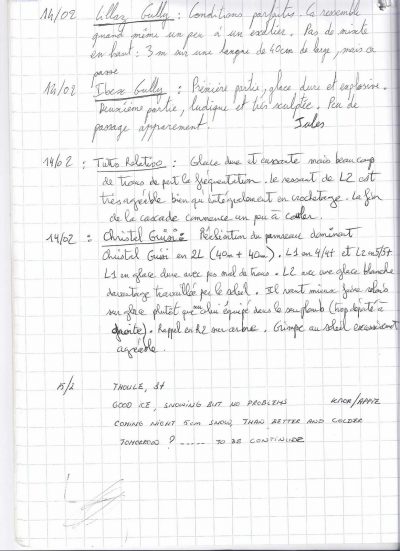 14/02 Lillaz Gully : Conditions parfaites. Ca ressemble
quand même un peu à un escalier. Pas de mixte
en haut : 3m sur une langue de 40cm de large, mais ca
passe
14/02 Ibex Gully : Première partie, glace dure et explosive.
Deuxième partie, ludique et très sculptée. Peu de
passage apparemment. Jules
14/02 : Tutto Relativo : Glace dure et cassante mais beaucoup
de trous de part la fréquentation. Le ressaut de L2 est
très agréable bien qu'intégralement en crochetage. La fin
de la cascade commence un peu à couler.
14/02 : Christel Guisi : Réalisation du panneau dominant
Christel Guisi en 2L (40m + 40m). L1 en 4/4+ et L2 en 5/5+
L1 en glace dure avec pas mal de trous. L2 avec une glace blanche
davantage travaillée par le soleil. Il vaut mieux faire relais
sur glace plutôt que celui équipé dans le surplomb (trop déporté à
droite). Rappel en L2 sur arbre. Grimpe au soleil
agréable.
15/2 THOULE, 3+
GOOD ICE, SNOWING BUT NO PROBLEMS
COMING NIGHT 5cm SNOW, THAN BETTER AND COLDER
TOMORROW ? ..... TO BE CONTINUED